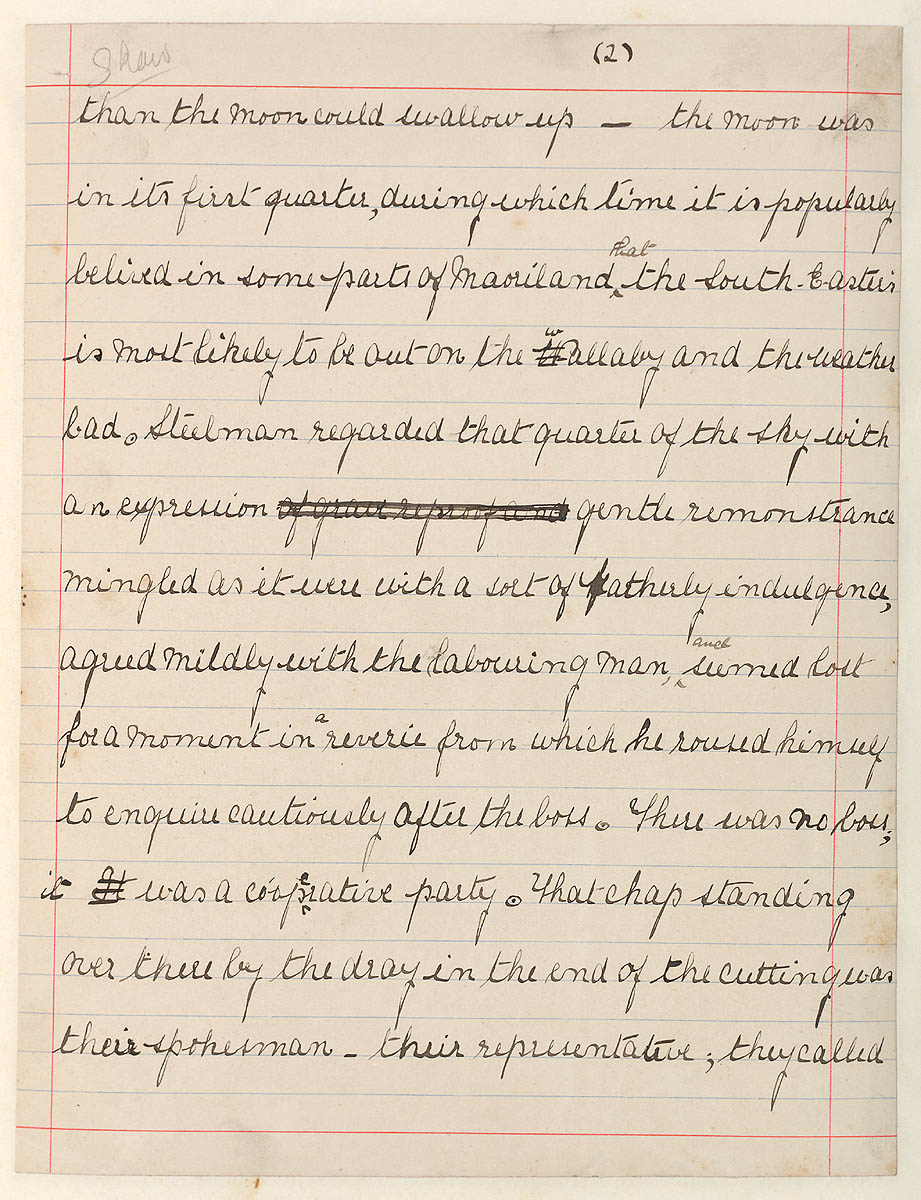 Shaw
(2)
than the moon could swallow up — the moon was
in its first quarter, during which time it is popularly
belived in some parts of Maoriland, that the South-Easter
is most likely to be out on the wallaby and the weather
bad. Steelman regarded that quarter of the sky with
an expression of grave reproof and gentle remonstrance
mingled as it were with a sort of fatherly indulgence,
agreed mildly with the labouring man, and seemed lost
for a moment in a reverie from which he roused himself
to enquire cautiously after the boss. There was no boss;
it It was a cooperative party. That chap standing
over there by the dray in the end of the cutting was
their spokesman – their representative; they called